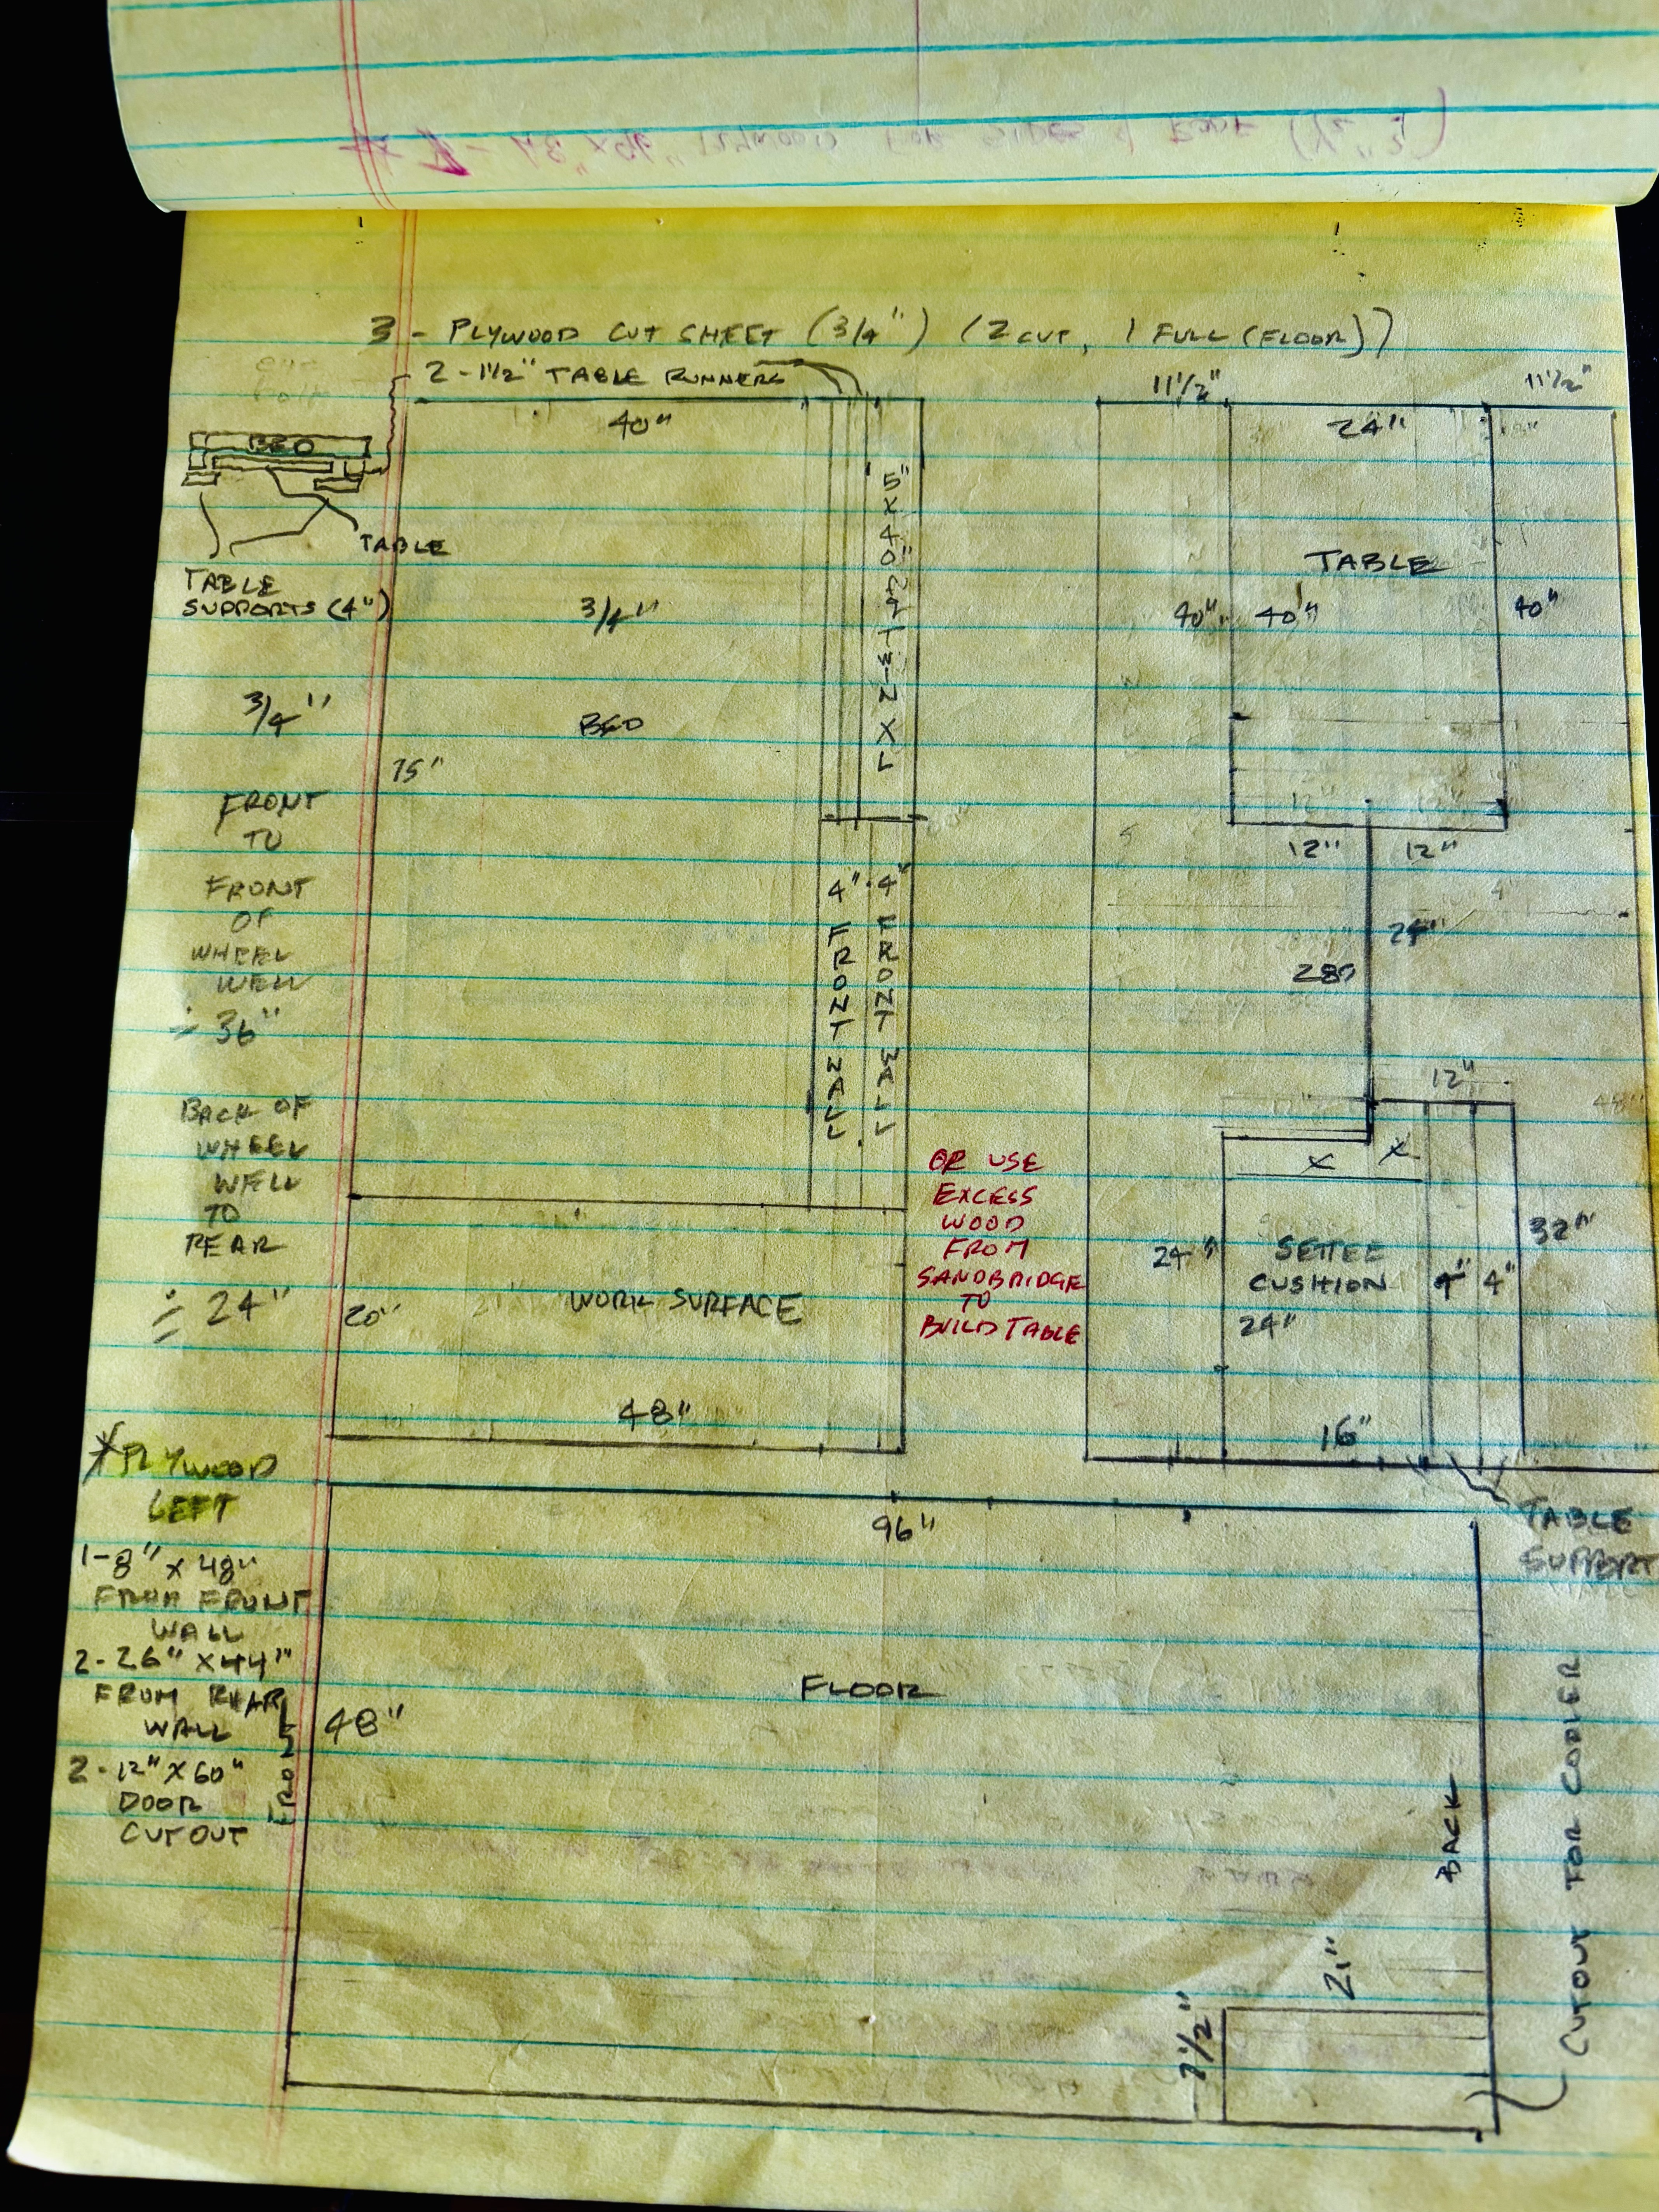 3 - PLYWOOD CUT SHEET (3/4") (2 CUT, 1 FULL (FLOOR))
2 - 1 1/2" TABLE RUNNERS
40"
BED
TABLE
TABLE
SUPPORTS (4")
3/4"
FRONT
TO
FRONT
OF
WHEEL
WELL
36"
BACK OF
WHEEL
WELL
TO
REAR
24"
3/4"
BED
75"
5" X 40"
TWIN XL
4" FRONT WALL
4" FRONT WALL
20"
WORK SURFACE
48"
OR USE
EXCESS
WOOD
FROM
SANDBRIDGE
TO
BUILD TABLE
11 1/2"
24"
11 1/2"
TABLE
40"
40"
40"
12"
12"
24"
28"
12"
X
X
24"
SETTEE
CUSHION
24"
4"
4"
32"
16"
TABLE
SUPPORT
* PLYWOOD
LEFT
1 - 8" X 48"
FROM FRONT
WALL
2 - 26" X 44"
FROM REAR
WALL
2 - 12" X 60"
DOOR
CUTOUT
96"
FRONT
48"
FLOOR
BACK
21"
CUTOUT FOR COOLER